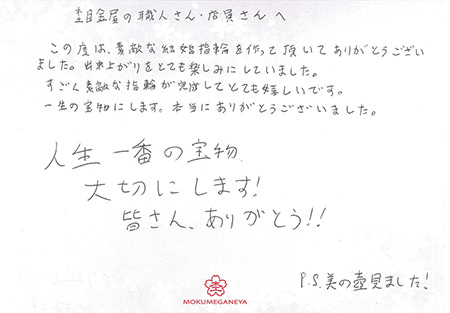 杢目金屋の職人さん・店員さん へ
この度は、素敵な結婚指輪を作って頂いてありがとうござい
ました。出来上がりをとても楽しみにしていました。
すごく素敵な指輪が完成してとても嬉しいです。
一生の宝物にします。本当にありがとうございました。
人生一番の宝物
大切にします!
皆さん、ありがとう!!
P.S.美の壺見ました!
MOKUMEGANEYA